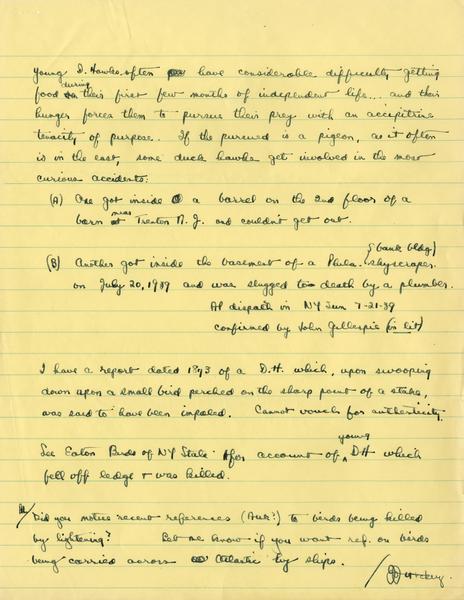 Young D. Hawks often have considerable difficulty getting
food during their first few months of independent life... and their
hunger forces them to pursue their prey with an accipitrine
tenacity of purpose. If the pursued is a pigeon, as it often
is in the east, some duck hawks get involved in the most
curious accidents:
(A) One got inside a barrel on the 2nd floor of a
barn near Trenton N.J. and couldn't get out.
(B) Another got inside the basement of a Phila. (bank bldg) skyscraper
on July 20, 1939 and was slugged to death by a plumber.
AP dispatch in NY Sun 7-21-39
confirmed by John Gillespie (in lit)
I have a report dated 1893 of a D.H. which, upon swooping
down upon a small bird perched on the sharp point of a stake,
was said to have been impaled. Cannot vouch for authenticity.
See Eaton Birds of NY State for account of young DH which
fell off ledge + was killed.
Did you notice recent references (Auk?) to birds being killed
by lightening? Let me know if you want ref. on birds
being carried across Atlantic by ships.
/ JJ Hickey